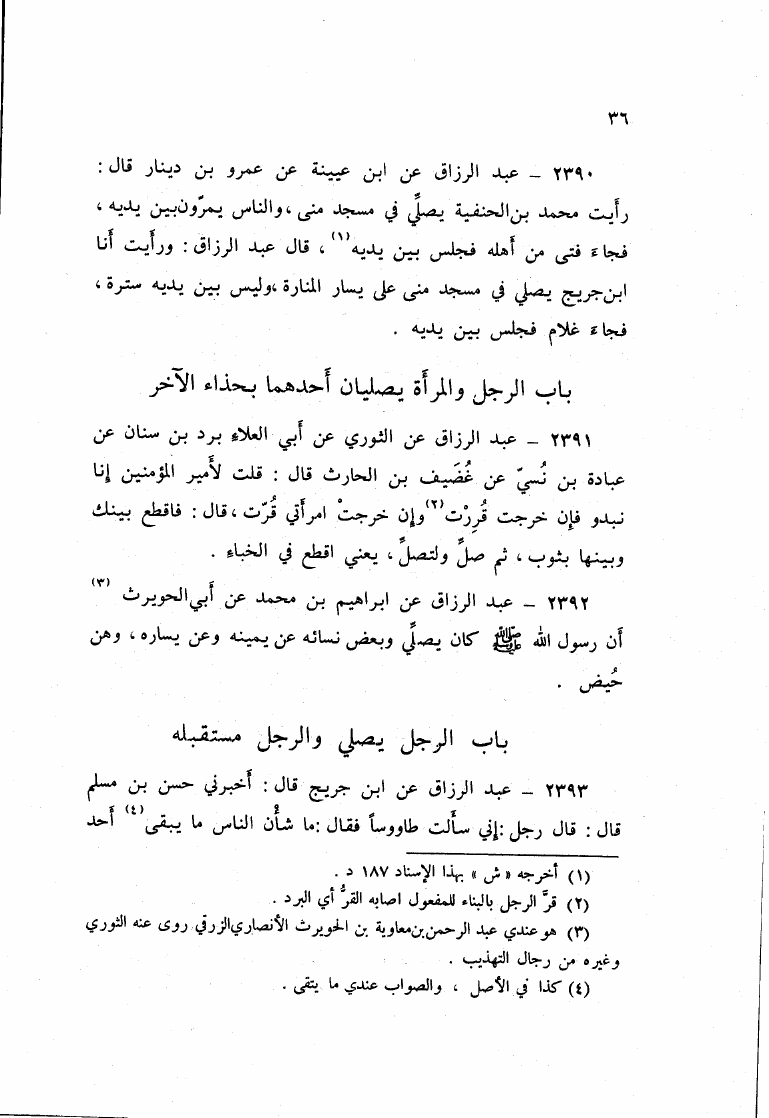 ٣٦
٢٣٩٠ – عبد الرزاق عن ابن عيينة عن عمرو بن دينار قال :
رأيت محمد بن الحنفية يصلِّي في مسجد منى ، والناس يمرّون بين يديه ،
فجاءَ فتى من أهله فجلس بين يديه(١) ، قال عبد الرزاق : ورأيت أنا
ابن جريج يصلي في مسجد منى على يسار المنارة ، وليس بين يديه سترة ،
فجاءَ غلام فجلس بين يديه .
باب الرجل والمرأة يصليان أحدهما بحذاء الآخر
٢٣٩١ – عبد الرزاق عن الثوري عن أبي العلاءِ برد بن سنان عن
عبادة بن نُسيّ عن غُضَيف بن الحارث قال : قلت لأمير المؤمنين إنا
نبدو فإن خرجت قُرِرْت(٢) وإن خرجتْ امرأتي قُرّت ، قال : فاقطع بينك
وبينها بثوب ، ثم صلِّ ولتصلِّ ، يعني اقطع في الخباءِ .
٢٣٩٢ – عبد الرزاق عن ابراهيم بن محمد عن أبي الحويرث (٣)
أن رسول الله ﷺ كان يصلِّي وبعض نسائه عن يمينه وعن يساره ، وهن
حُيض .
باب الرجل يصلي والرجل مستقبله
٢٣٩٣ – عبد الرزاق عن ابن جريج قال : أخبرني حسن بن مسلم
قال : قال رجل : إني سأَلت طاووساً فقال : ما شأْن الناس ما يبقى(٤) أحد
(١) أخرجه « ش » بهذا الإسناد ١٨٧ د .
(٢) قرَّ الرجل بالبناء للمفعول اصابه القرُّ أي البرد .
(٣) هو عندي عبد الرحمن بن معاوية بن الحويرث الأنصاري الزرقي روى عنه الثوري
وغيره من رجال التهذيب .
(٤) كذا في الأصل ، والصواب عندي ما يتقى .